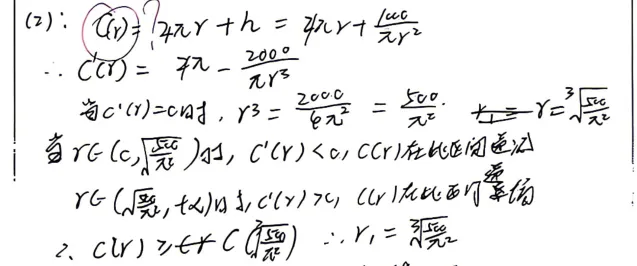 (2): C(r) = 4πr + h = 4πr + 1000/πr²
∴ C'(r) = 4π - 2000/πr³
当C'(r)=0时, r³ = 2000/4π² = 500/π². r = ∛(500/π²)
当r∈(0, ∛(500/π²))时, C'(r)<0, C(r)在此区间递减
r∈(∛(500/π²), +∞)时, C'(r)>0, C(r)在此区间递增
∴ C(r) ≥ C(∛(500/π²)) ∴ r₁ = ∛(500/π²)